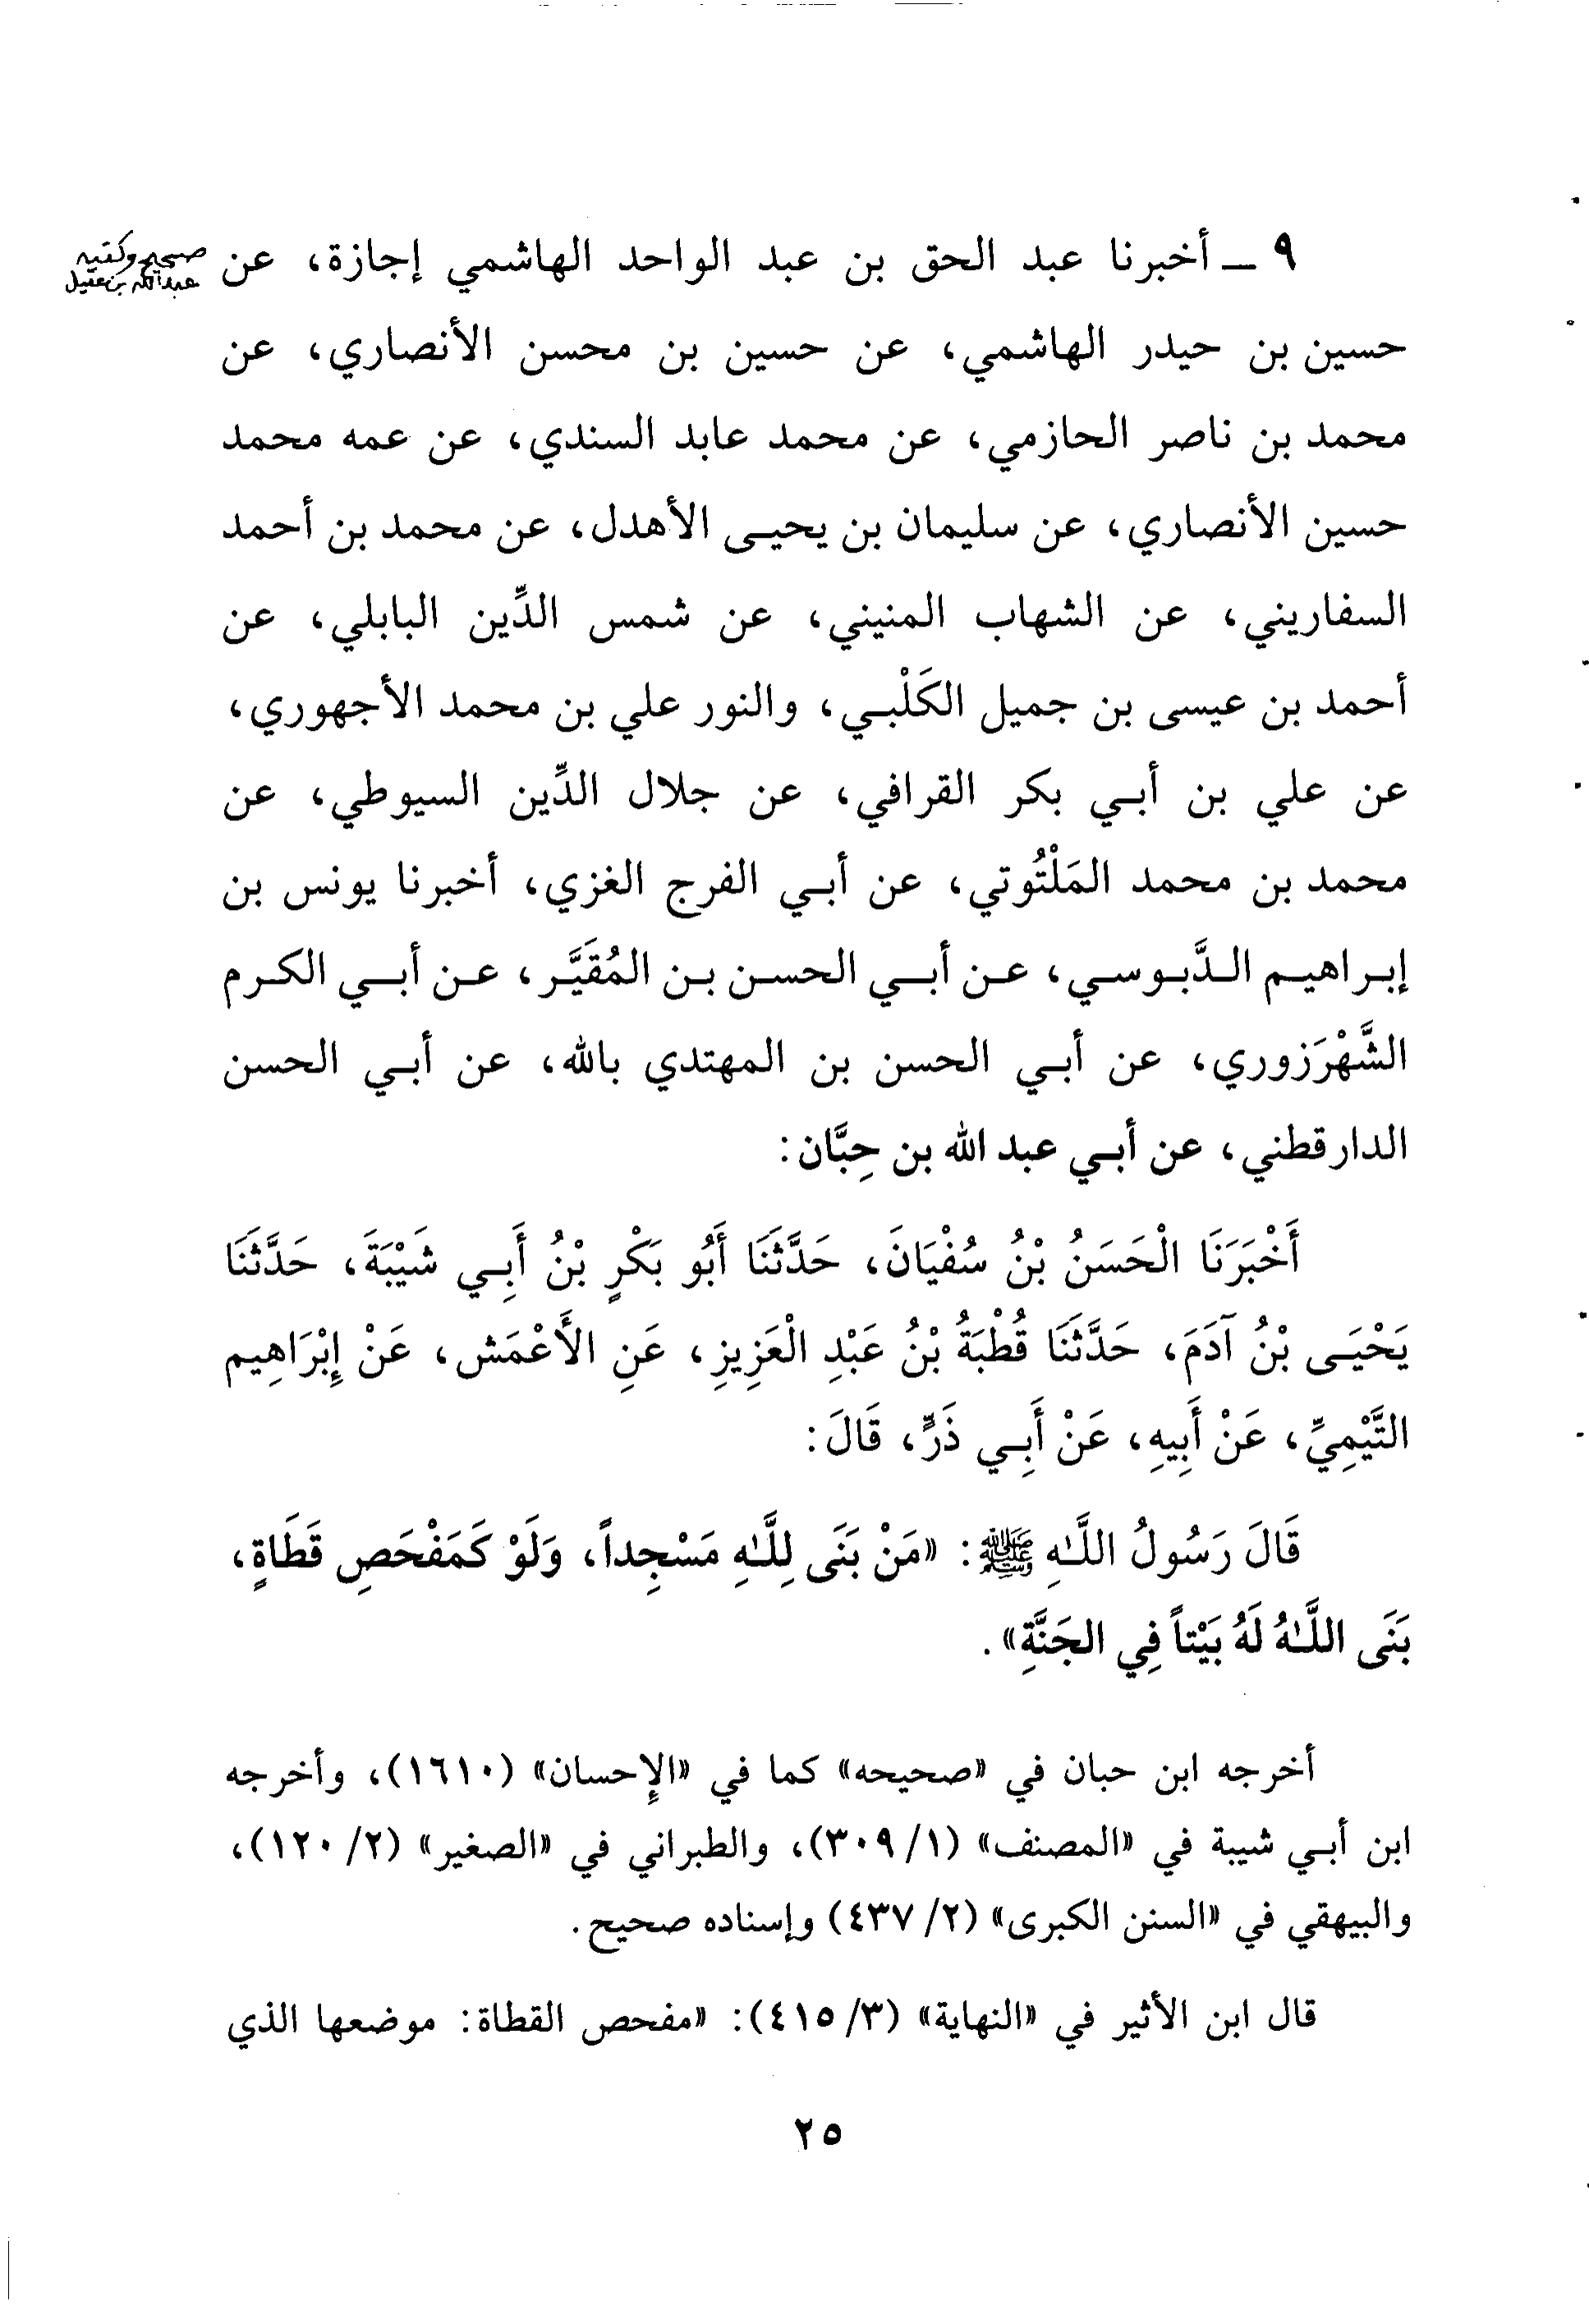 ٩ ــ أخبرنا عبد الحق بن عبد الواحد الهاشمي إجازة، عن
صحيح وكتبه
عبدالله بن عقيل
حسين بن حيدر الهاشمي، عن حسين بن محسن الأنصاري، عن
محمد بن ناصر الحازمي، عن محمد عابد السندي، عن عمه محمد
حسين الأنصاري، عن سليمان بن يحيى الأهدل، عن محمد بن أحمد
السفاريني، عن الشهاب المنيني، عن شمس الدِّين البابلي، عن
أحمد بن عيسى بن جميل الكَلْبي، والنور علي بن محمد الأجهوري،
عن علي بن أبي بكر القرافي، عن جلال الدِّين السيوطي، عن
محمد بن محمد المَلْتُوتي، عن أبي الفرج الغزي، أخبرنا يونس بن
إبراهيم الدَّبوسي، عن أبي الحسن بن المُقَيَّر، عن أبي الكرم
الشَّهْرَزوري، عن أبي الحسن بن المهتدي بالله، عن أبي الحسن
الدارقطني، عن أبي عبد الله بن حِبَّان:
أَخْبَرَنَا الْحَسَنُ بْنُ سُفْيَانَ، حَدَّثَنَا أَبُو بَكْرٍ بْنُ أَبِي شَيْبَةَ، حَدَّثَنَا
يَحْيَى بْنُ آدَمَ، حَدَّثَنَا قُطْبَةُ بْنُ عَبْدِ الْعَزِيزِ، عَنِ الأَعْمَش، عَنْ إِبْرَاهِيم
التَّيْمِيِّ، عَنْ أَبِيهِ، عَنْ أَبِي ذَرٍّ، قَالَ:
قَالَ رَسُولُ اللَّهِ ﷺ: «مَنْ بَنَى لِلَّهِ مَسْجِداً، وَلَوْ كَمَفْحَصِ قَطَاةٍ،
بَنَى اللَّهُ لَهُ بَيْتاً فِي الجَنَّةِ».
أخرجه ابن حبان في «صحيحه» كما في «الإحسان» (١٦١٠)، وأخرجه
ابن أبي شيبة في «المصنف» (١/ ٣٠٩)، والطبراني في «الصغير» (٢/ ١٢٠)،
والبيهقي في «السنن الكبرى» (٢/ ٤٣٧) وإسناده صحيح.
قال ابن الأثير في «النهاية» (٣/ ٤١٥): «مفحص القطاة: موضعها الذي
٢٥